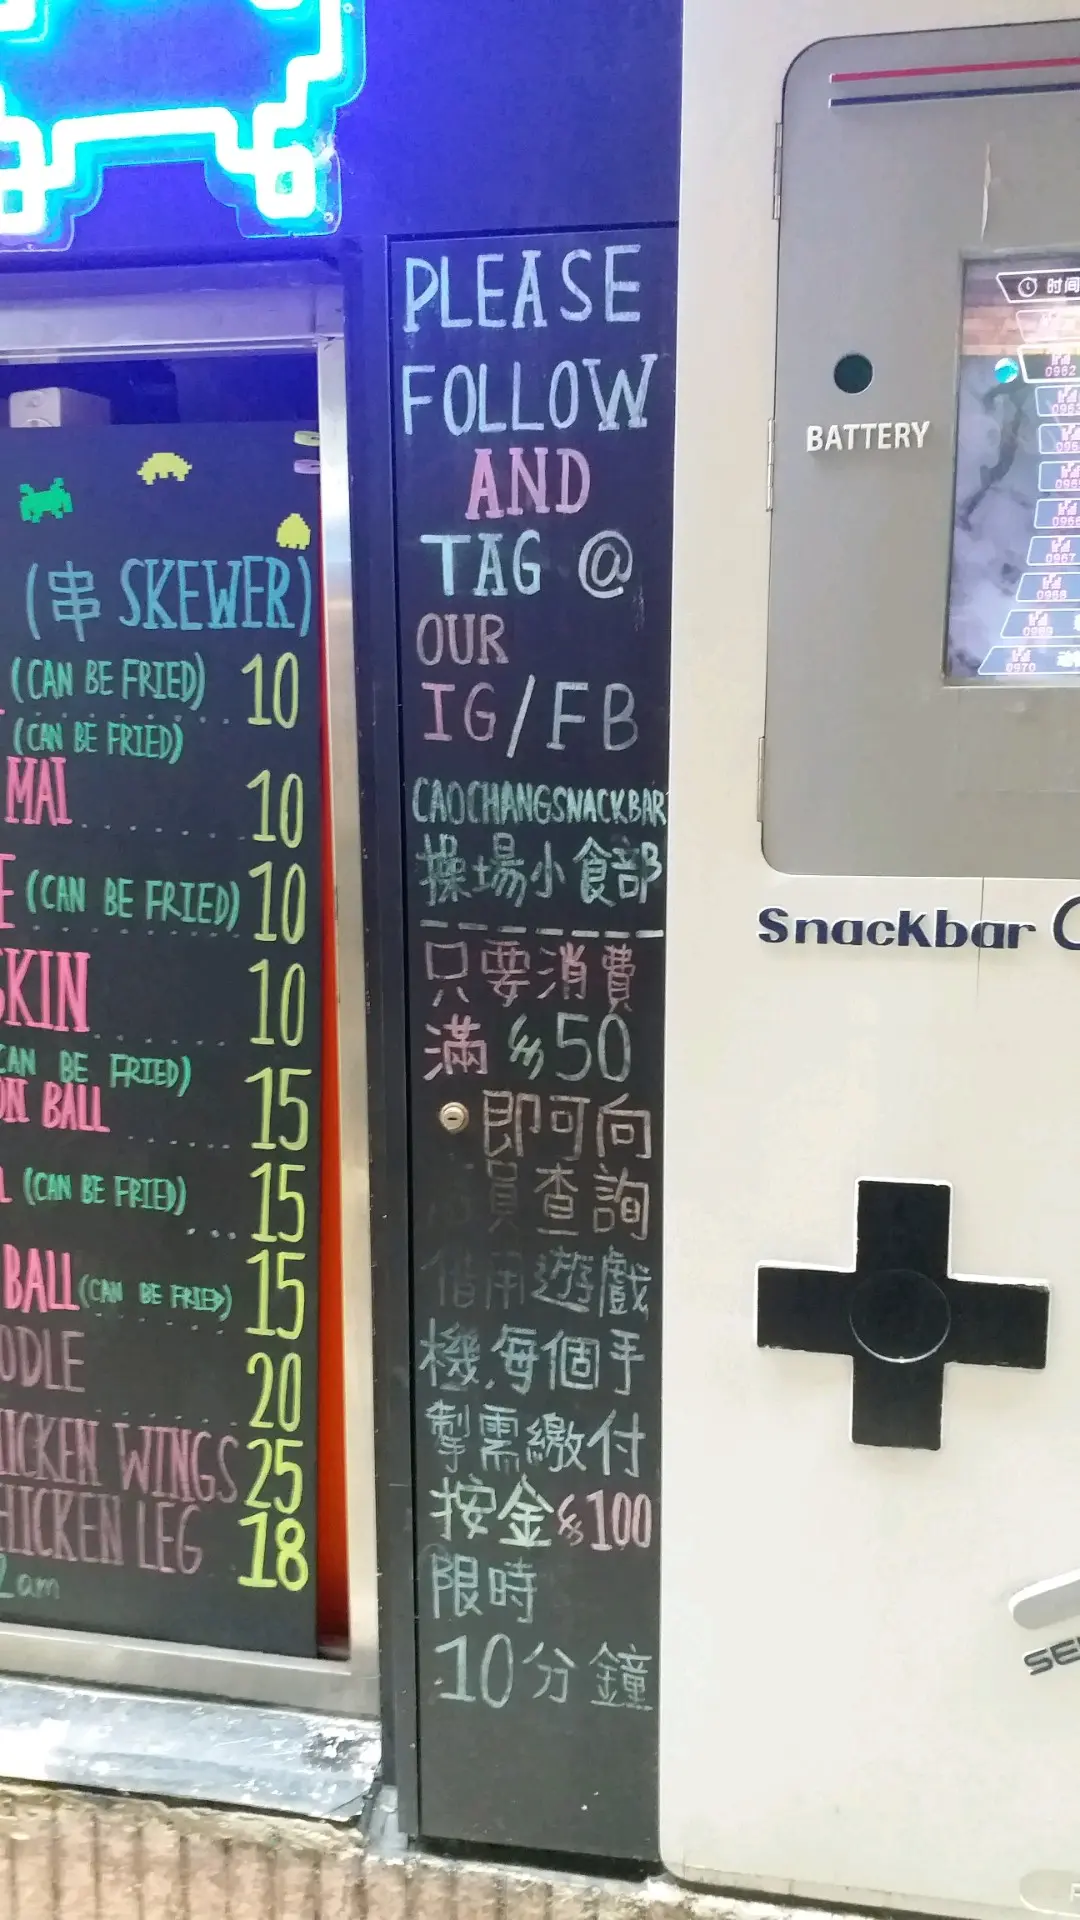 (串 SKEWER)
(CAN BE FRIED)
10
(CAN BE FRIED)
MAI 10
(CAN BE FRIED) 10
SKIN 10
(CAN BE FRIED)
BALL 15
(CAN BE FRIED)
15
BALL (CAN BE FRIED) 15
20
CHICKEN WINGS 25
CHICKEN LEG 18
2am
PLEASE
FOLLOW
AND
TAG @
OUR
IG/FB
CAOCHANGSNACKBAR
操場小食部
只要消費
滿$50
即可向
員查詢
借用遊戲
機,每個手
掣需繳付
按金$100
限時
10分鐘
BATTERY
时间
0962
0967
0968
0969
0970
Snackbar